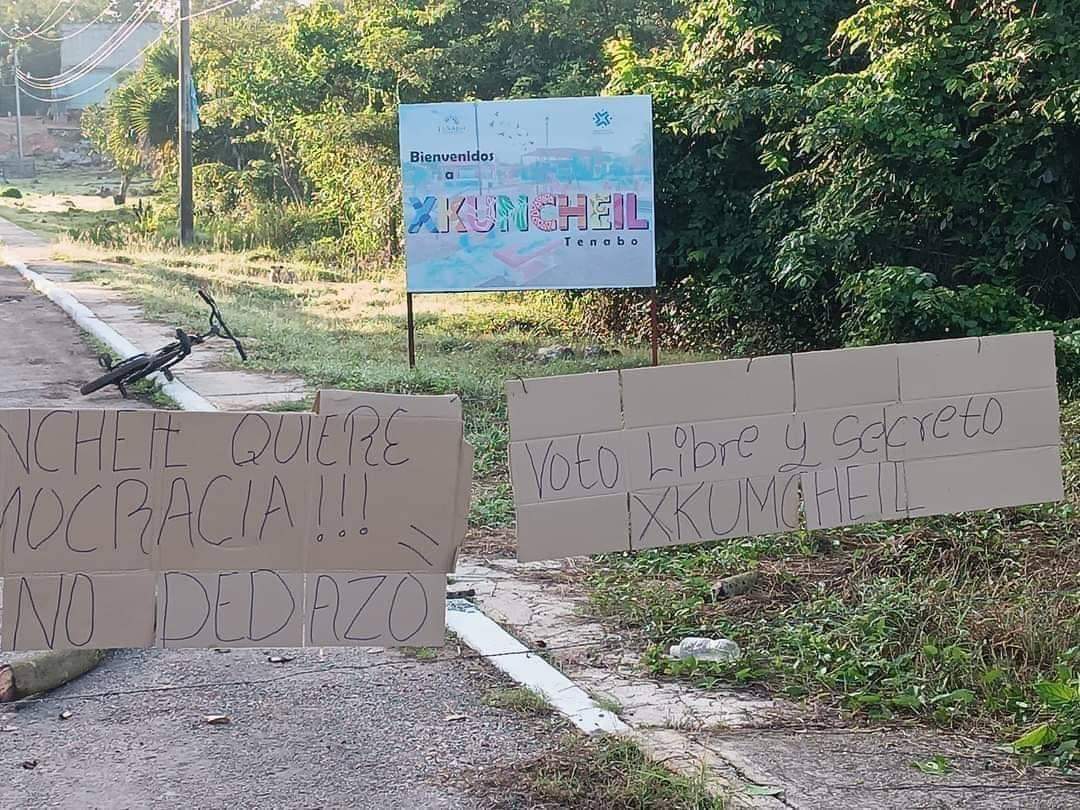 TENABO
Bienvenidos
a
XKUNCHEIL
Tenabo
NCHEIL QUIERE
MOCRACIA!!!
NO DEDAZO
Voto Libre y secreto
XKUMCHEIL